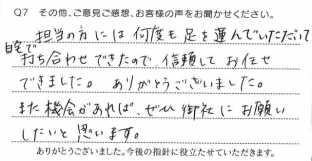 Q7 その他、ご意見ご感想、お客様の声をお聞かせください。
担当の方には何度も足を運んでいただいて
自宅で
打ち合わせできたので、信頼してお任せ
できました。ありがとうございました。
また機会があれば、ぜひ御社にお願い
したいと思います。
ありがとうございました。今後の指針に役立たせていただきます。